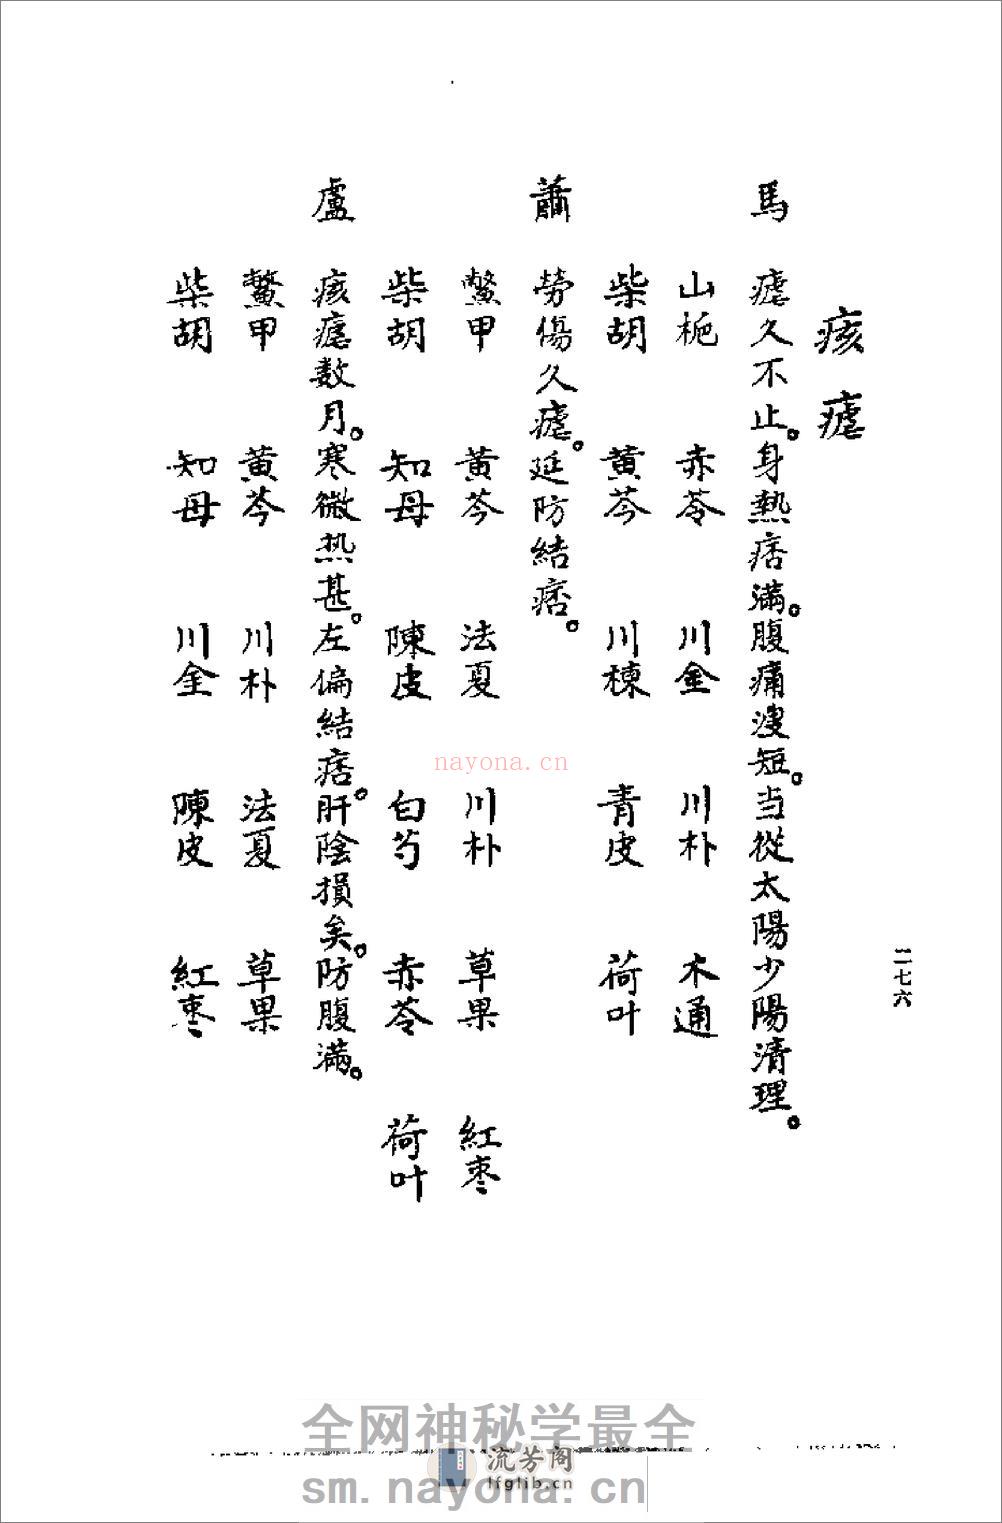 痎瘧
馬　瘧久不止。身熱痞滿。腹痛溲短。当從太陽少陽清理。
山梔　赤苓　川金　川朴　木通
柴胡　黄芩　川楝　青皮　荷叶
蕭　勞傷久瘧。延防結痞。
鱉甲　黄芩　法夏　川朴　草果　紅棗
柴胡　知母　陳皮　白芍　赤苓　荷叶
盧　痎瘧数月。寒微热甚。左偏結痞。肝陰損矣。防腹滿。
鱉甲　黄芩　川朴　法夏　草果
柴胡　知母　川金　陳皮　紅棗
二七六
nayona.cn
全网神秘学最全
流芳阁
lfglib.cn
sm.nayona.cn